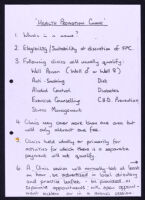 'HEALTH PROMOTION CLINICS'
1. What's in a name?
2. Eligibility / Suitability at discretion of FPC.
3. Following clinics will usually qualify:
Well Person (Well ♂ or Well ♀)
Anti-Smoking Diet
Alcohol Control Diabetes
Exercise Counselling C.H.D. Prevention
Stress Management
4. Clinic may cover more than one area but
will only attract one fee.
5. Clinic held wholly or primarily for
activities for which there is a separate
payment will not qualify
6. A Clinic session will normally last at least
an hour, be advertised in local directory
and practice leaflet -
appointments will be